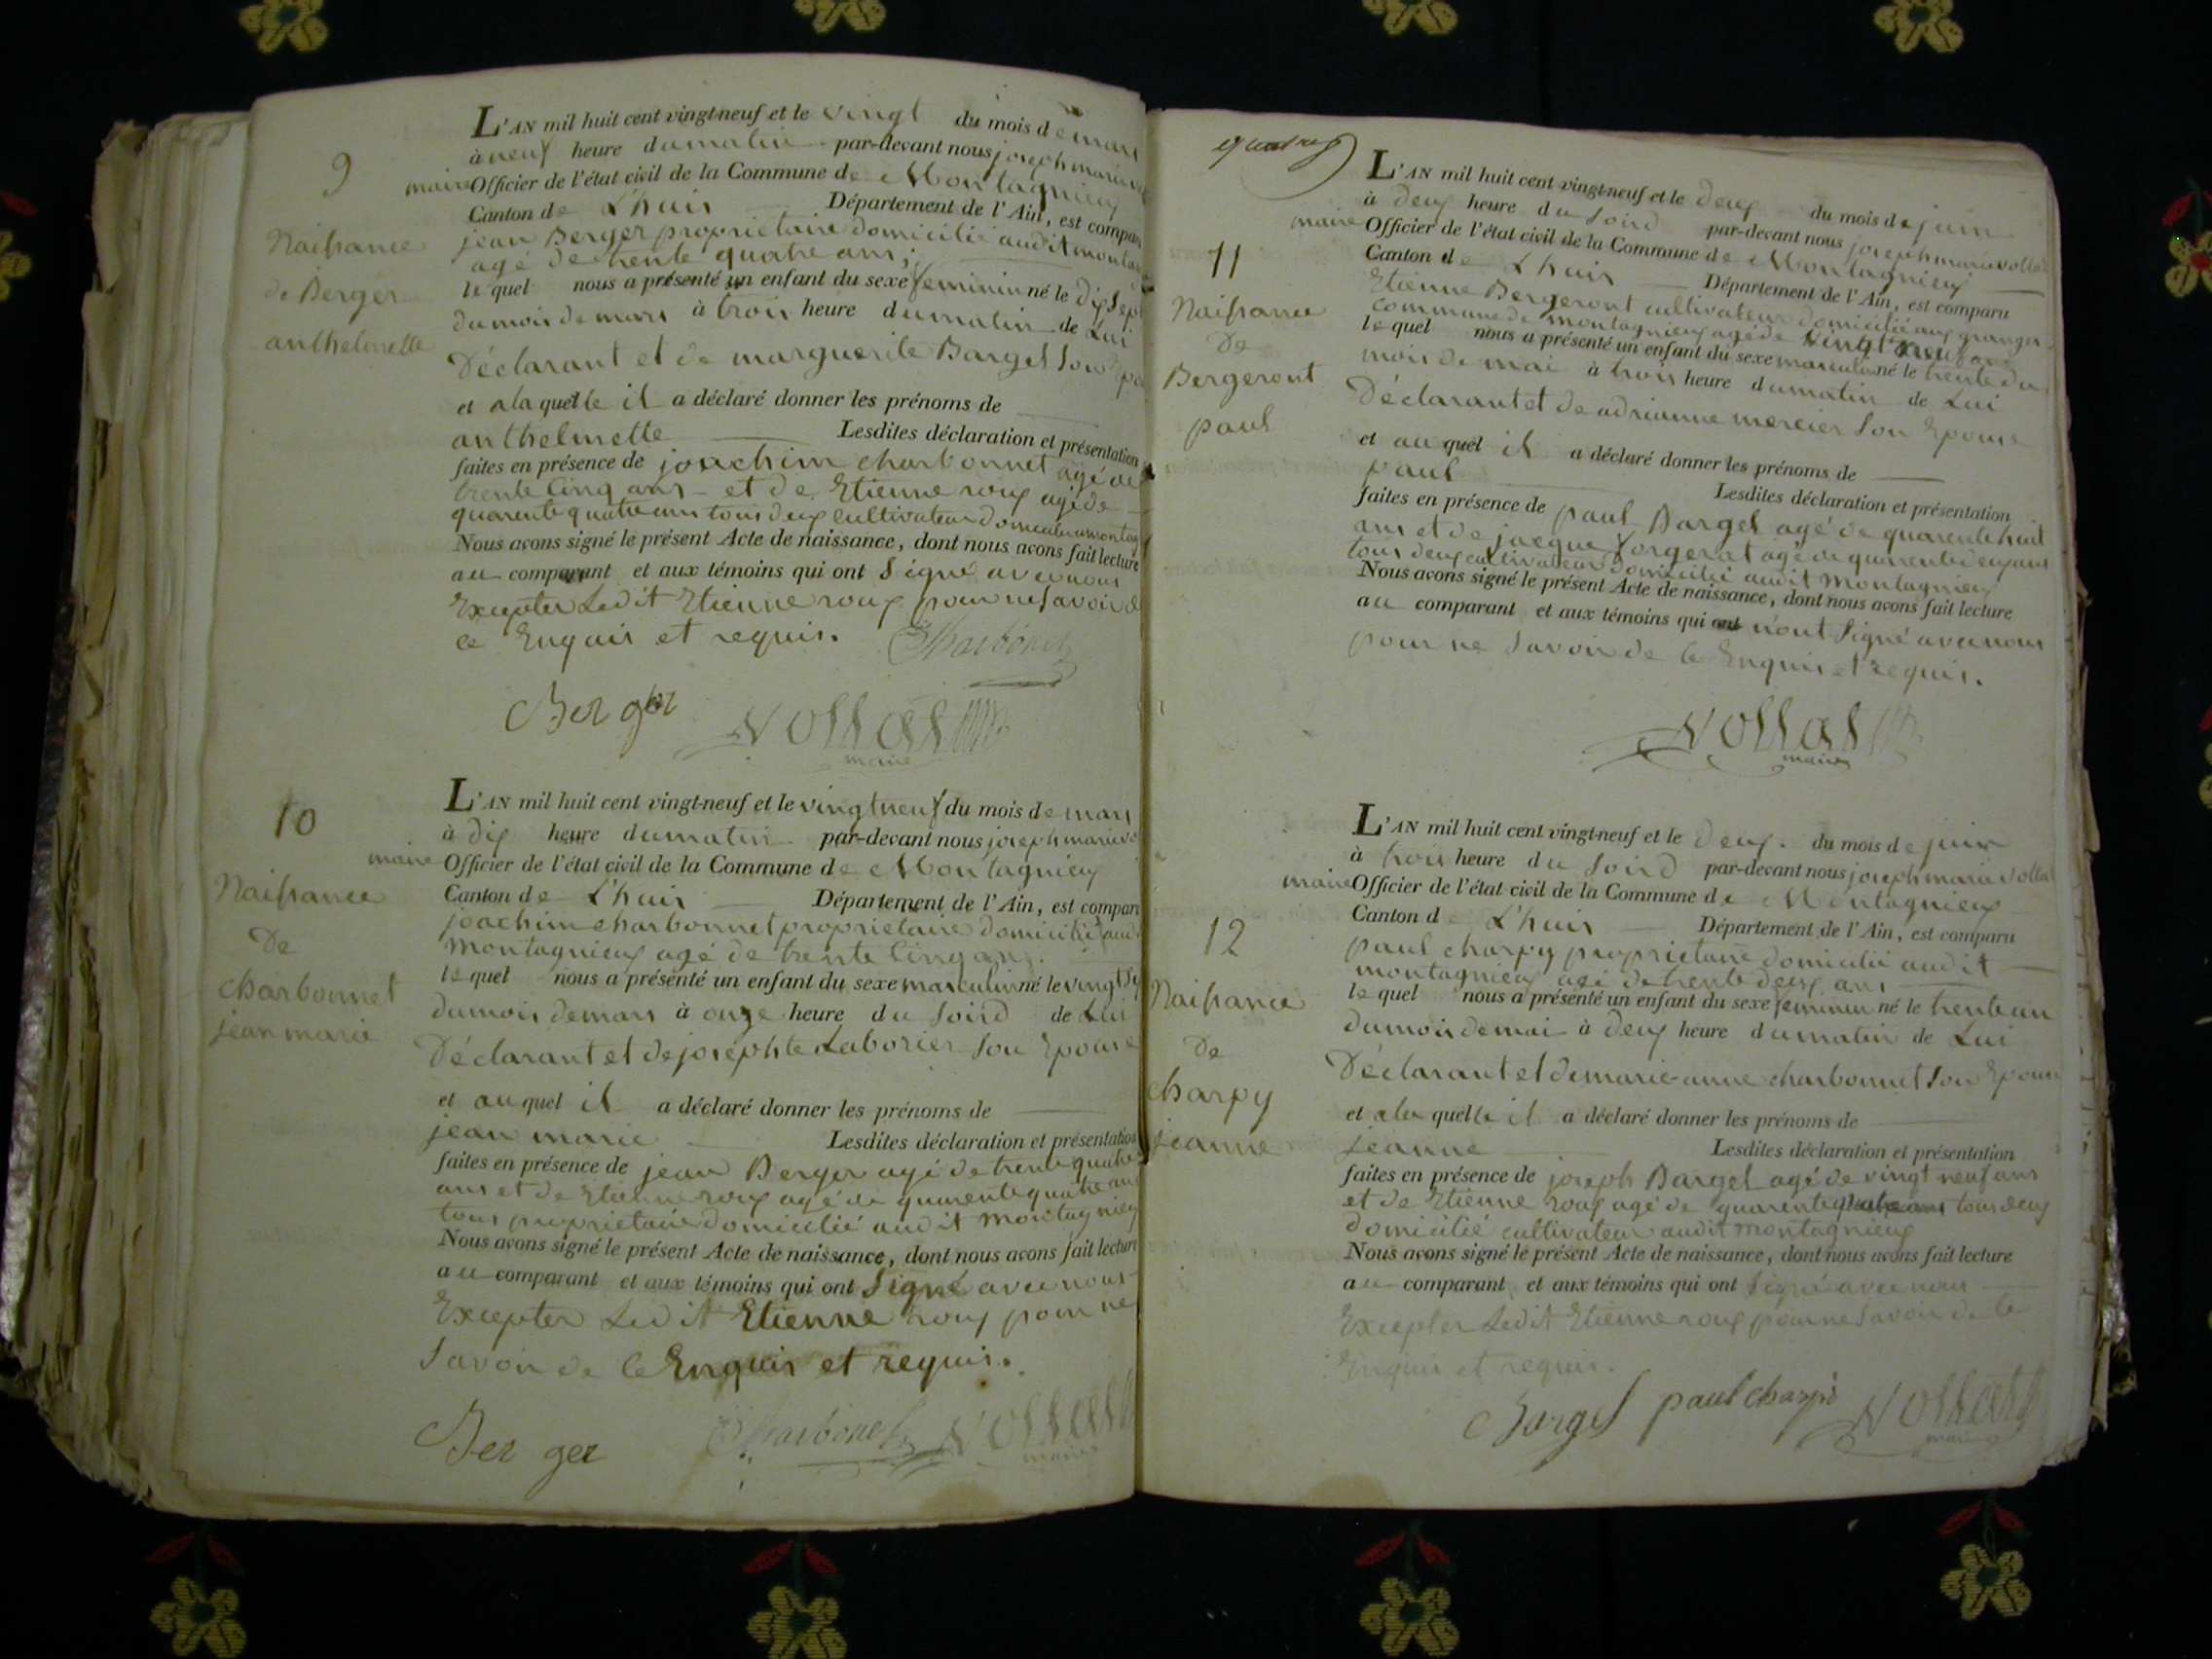 9
Naissance
de Berger
anthelmette
L'AN mil huit cent vingt-neuf et le vingt du mois de mars
à neuf heure du matin par-devant nous joseph marie
maire Officier de l'état civil de la Commune de Montagnieux
Canton de L'huis Département de l'Ain, est compar
jean Berger proprietaire domicilié audit monta
agé de trente quatre ans,
le quel nous a présenté un enfant du sexe feminin né le dix sept
du mois de mars à trois heure du matin de Lui
Déclarant et de marguerite Barget son épo
et a la quelle il a déclaré donner les prénoms de
anthelmette Lesdites déclaration et présentation
faites en présence de joachim charbonnet agé de
trente cinq ans et de Etienne roux agé de
quarente quatre ans tous deux cultivateur domicilié a montag
Nous avons signé le présent Acte de naissance, dont nous avons fait lecture
au comparant et aux témoins qui ont Signé avec nous
Excepter Ledit Etienne roux pour ne savoir d
ce Enquis et requis. Charbonet
Berger Vollat
maire
10
Naissance
De
charbonnet
jean marie
L'AN mil huit cent vingt-neuf et le vingt neuf du mois de mars
à dix heure du matin par-devant nous joseph marie vo
maire Officier de l'état civil de la Commune de Montagnieux
Canton de L'huis Département de l'Ain, est compar
joachim charbonnet proprietaire domicilié aud
Montagnieux agé de trente cinq ans.
le quel nous a présenté un enfant du sexe masculin né le vingt
du mois de mars à onze heure du Soird de Lui
Déclarant et de josephte Laborier son Epouse
et au quel il a déclaré donner les prénoms de
jean marie Lesdites déclaration et présentation
faites en présence de jean Berger agé de trente quatre
ans et de Etienne roux agé de quarente quatre ans
tous proprietaire domicilié audit montagnieux
Nous avons signé le présent Acte de naissance, dont nous avons fait lecture
au comparant et aux témoins qui ont Signé avec nous
Excepter Ledit Etienne roux pour ne
Savoir de ce Enquis et requis.
Ber ger Charbonet Vollat
maire
11
Naissance
De
Bergeront
paul
L'AN mil huit cent vingt-neuf et le deux du mois de juin
à deux heure du Soird par-devant nous joseph marie vollat
maire Officier de l'état civil de la Commune de Montagnieux
Canton de L'huis Département de l'Ain, est comparu
Etienne Bergeront cultivateur domicilié aux granges
commune de montagnieux agé de vingt neuf ans
le quel nous a présenté un enfant du sexe masculin né le trente du
mois de mai à trois heure du matin de Lui
Déclarant et de adrianne mercier Son Epouse
et au quel il a déclaré donner les prénoms de
paul Lesdites déclaration et présentation
faites en présence de paul Barget agé de quarente huit
ans et de jacque forgerat agé de quarente deux ans
tous deux cultivateur domicilié audit Montagnieux
Nous avons signé le présent Acte de naissance, dont nous avons fait lecture
au comparant et aux témoins qui ont n'ont Signé avec nous
pour ne Savoir de ce Enquis et requis.
Vollat
maire
12
Naissance
De
charpy
jeanne
L'AN mil huit cent vingt-neuf et le deux. du mois de juin
à trois heure du Soird par-devant nous joseph marie vollat
maire Officier de l'état civil de la Commune de Montagnieux
Canton de L'huis Département de l'Ain, est comparu
paul charpy proprietaire domicilié audit
montagnieux agé de trente deux ans
le quel nous a présenté un enfant du sexe feminin né le trente un
du mois de mai à deux heure du matin de Lui
Déclarant et de marie-anne charbonnet Son Epouse
et a la quelle il a déclaré donner les prénoms de
jeanne Lesdites déclaration et présentation
faites en présence de joseph Barget agé de vingt neuf ans
et de Etienne roux agé de quarente quatre ans tous deux
domicilié cultivateur audit montagnieux
Nous avons signé le présent Acte de naissance, dont nous avons fait lecture
au comparant et aux témoins qui ont Signé avec nous
Excepter Ledit Etienne roux pour ne Savoir de ce
Enquis et requis.
Barget paul charpi Vollat
maire